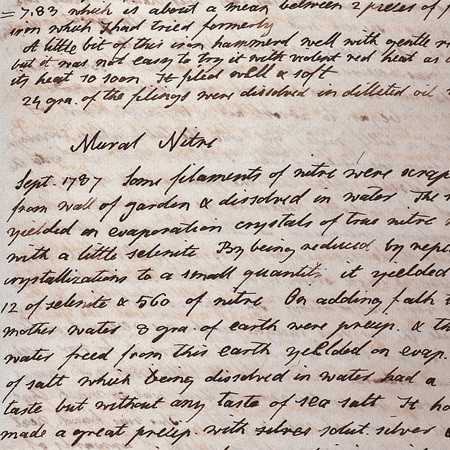 = 7.83 which is about a mean between 2 pieces of
iron which I had tried formerly
A little bit of this iron hammerd well with gentle
but it was not easy to try it with violent red heat as
its heat so soon It plied well & soft
24 gra. of the filings were dissolved in dilleted oil
Mural Nitre
Sept. 1787 Some filaments of nitre were scrap
from wall of garden & dissolved in water The
yeilded on evaporation crystals of true nitre
with a little selenite By being reduced by repe
crystallizations to a small quantity it yeelded
12 of selenite & 560 of nitre On adding f. alk
mother water 8 gra. of earth were precip. & th
water freed from this earth yeilded on evap.
of salt which being dissolved in water had a
taste but without any taste of sea salt It ho
made a great precip. with silver solut. silver